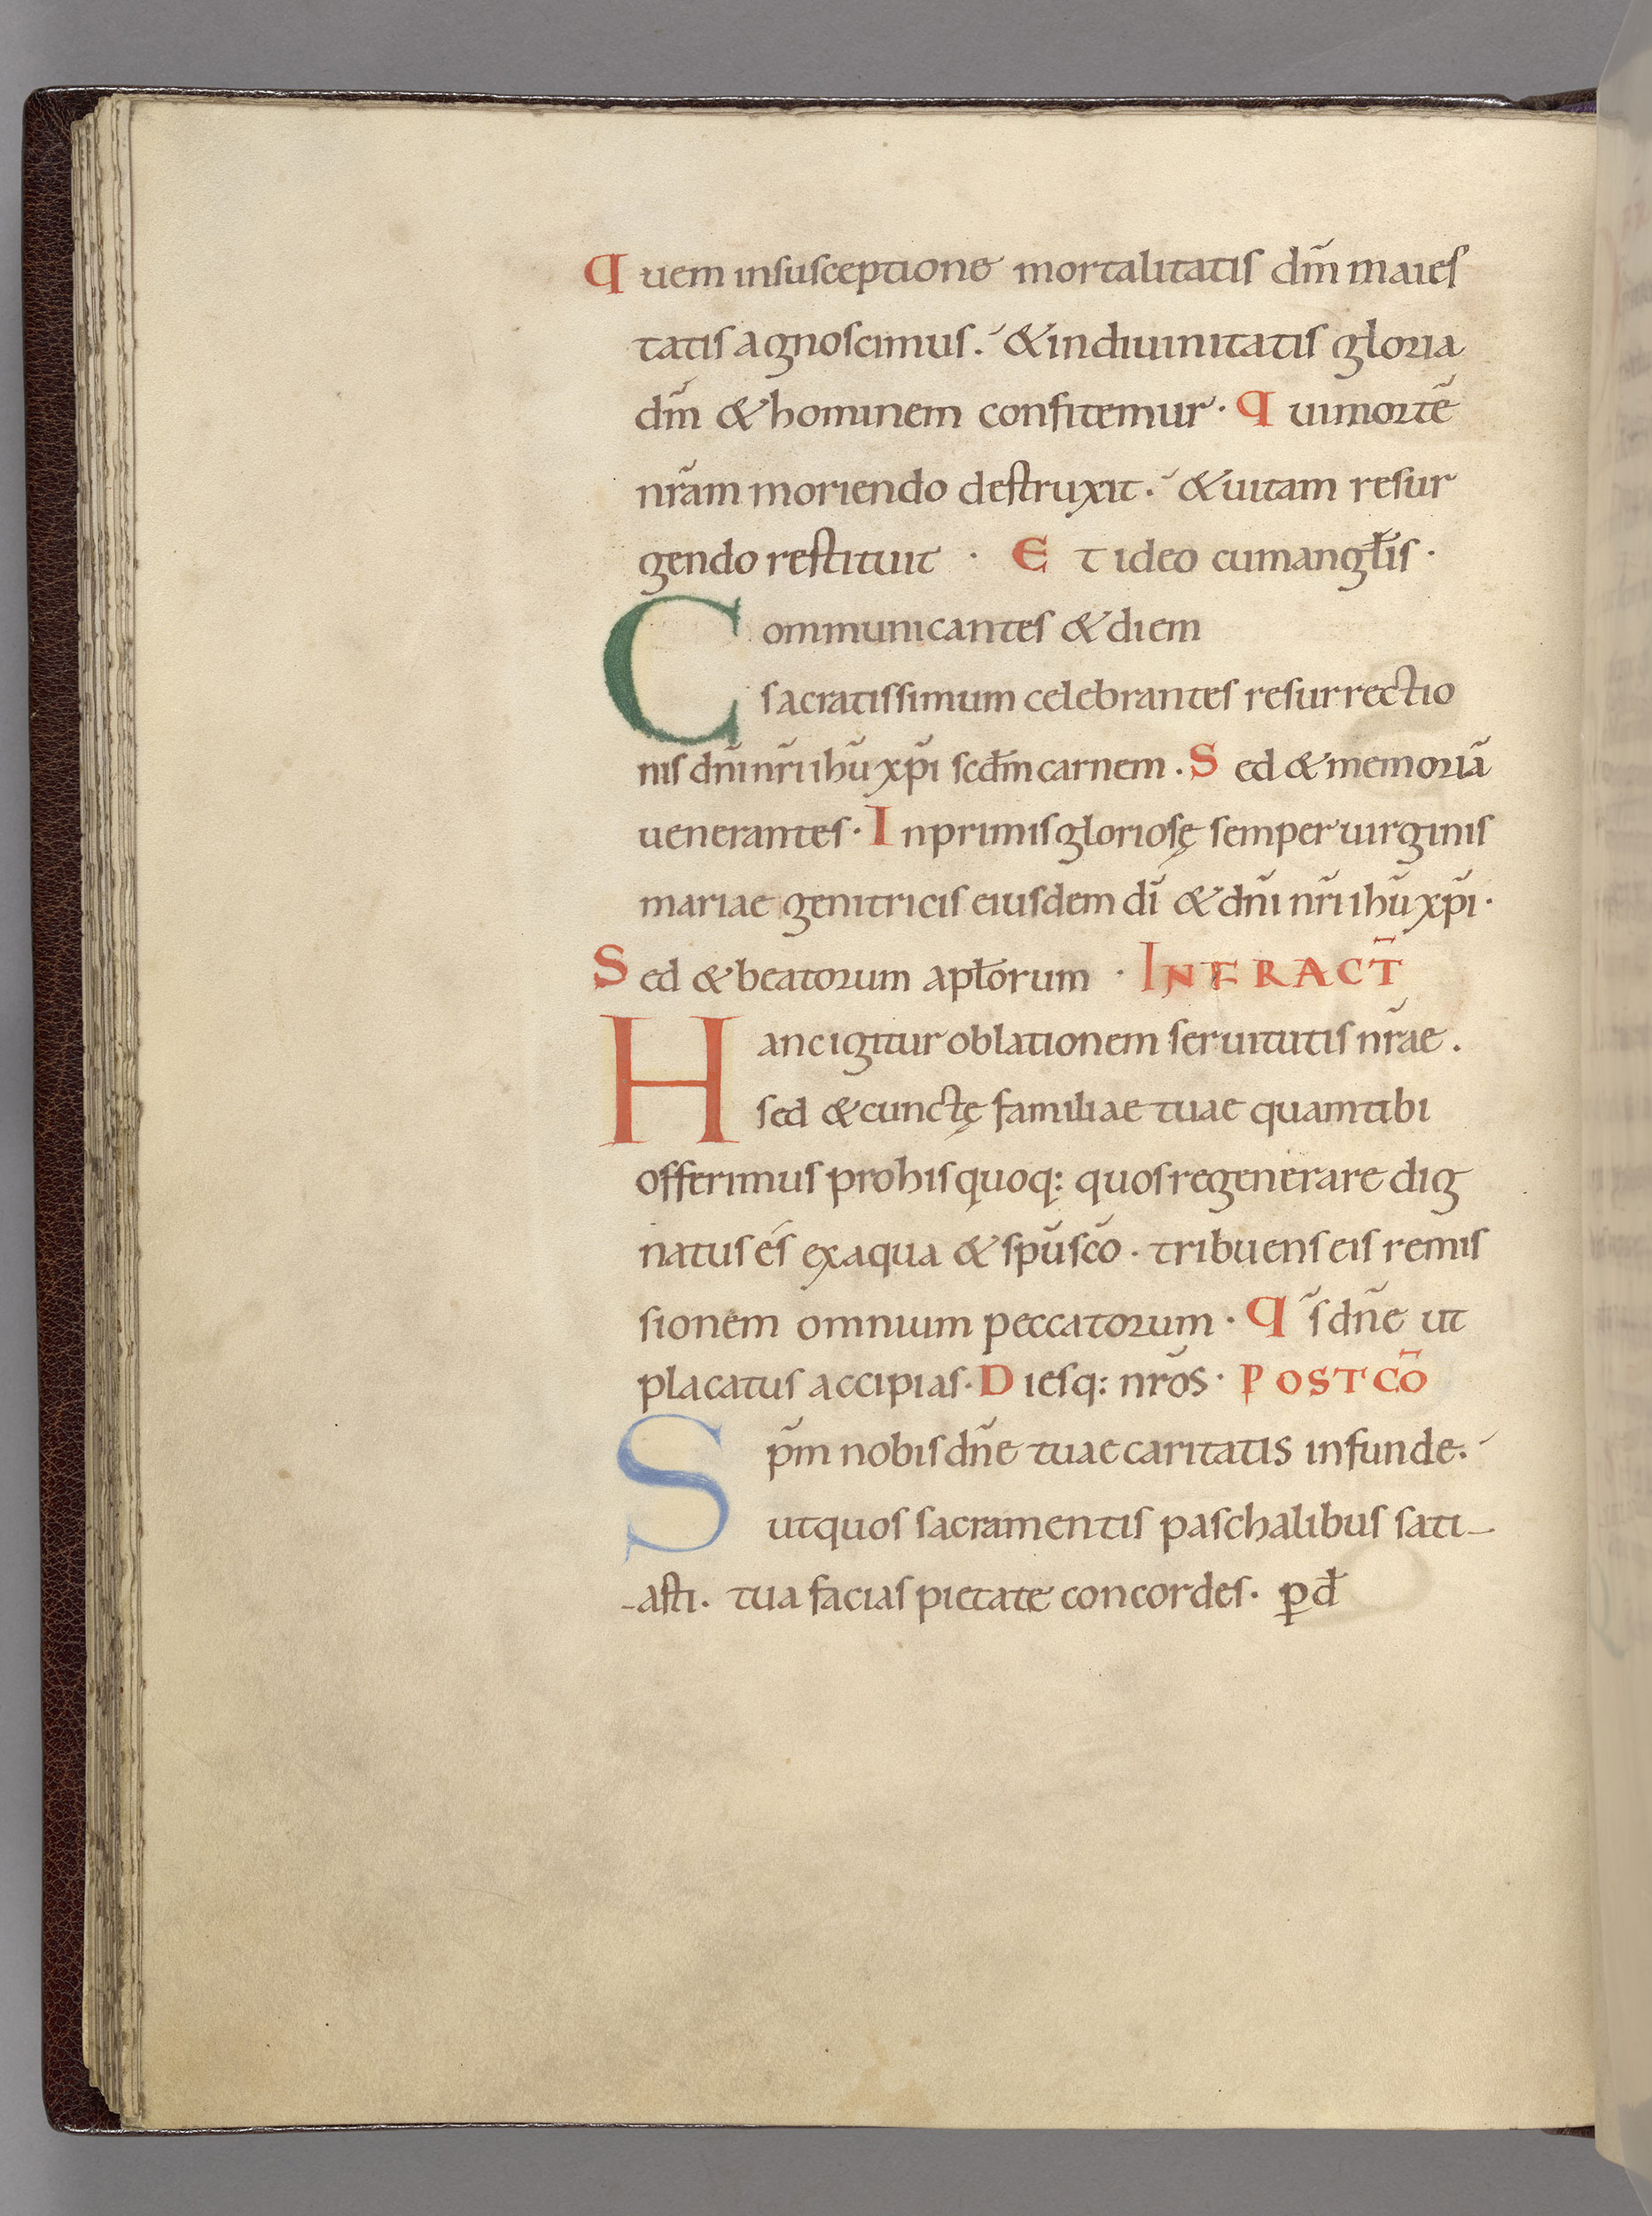 Quem insusceptione mortalitatis dm̃ maies
tatis agnoscimus. &indiuinitatis gloria
dm̃ &hominem confitemur· Quimortẽ
nr̃am moriendo destruxit. &uitam resur
gendo restituit · Et ideo cumangłis·
Communicantes &diem
sacratissimum celebrantes resurrectio
nis dñi nr̃i ihũ xp̃i scđm carnem. Sed &memoriã
uenerantes· Inprimis gloriosę semper uirginis
mariae genitricis eiusdem dĩ &dñi nr̃i ihũ xp̃i·
Sed &beatorum apłorum · INFRA CT̄
Hanc igitur oblationem seruitutis nr̃ae.
sed &cunctę familiae tuae quam tibi
offerimus pro his quoq: quos regenerare dig
natus és ex aqua &spũ scõ· tribuens eis remis
sionem omnium peccatorum· Q̃s dñe ut
placatus accipias· Diesq: nrõs· POST CO̅
Sp̃m nobis dñe tuae caritatis infunde.
ut quos sacramentis paschalibus sati-
-asti. tua facias pietate concordes. ꝑ đ